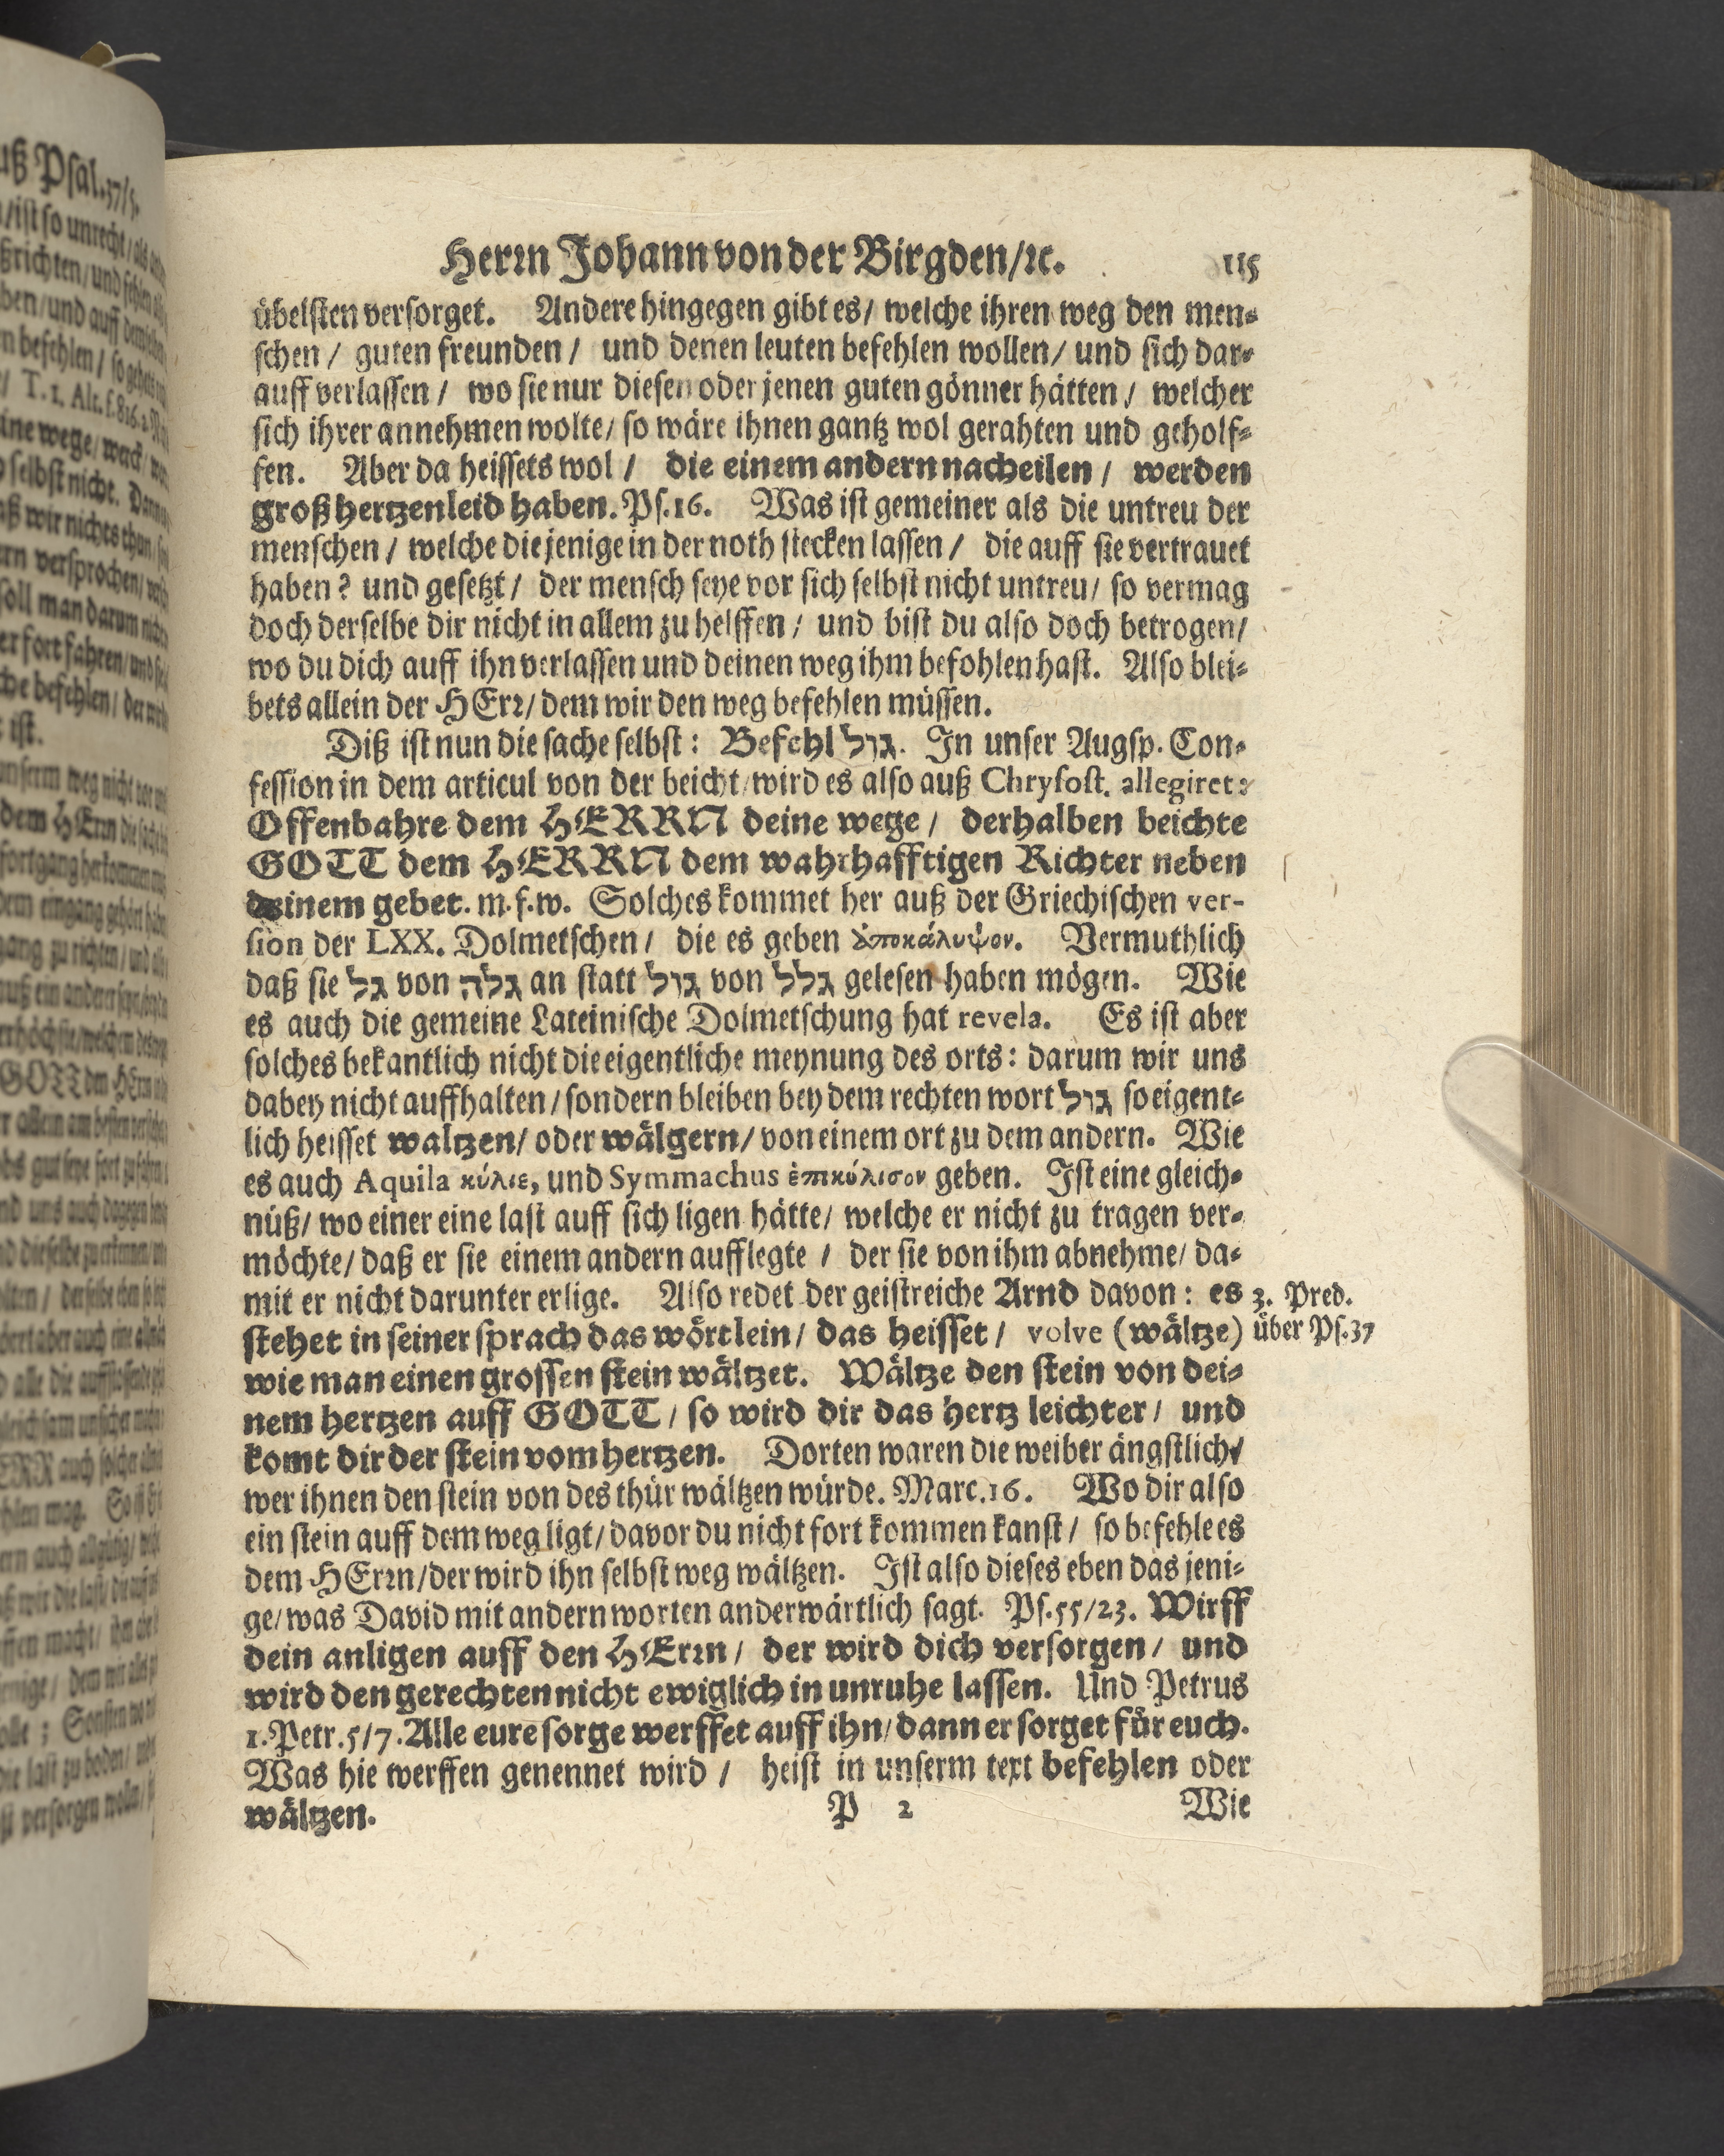 Herrn Johann von der Birgden/ꝛc. 115
übelsten versorget. Andere hingegen gibt es/ welche ihren weg den men-
schen / guten freunden / und denen leuten befehlen wollen/ und sich dar-
auff verlassen / wo sie nur diesen oder jenen guten gönner hätten / welcher
sich ihrer annehmen wolte/ so wäre ihnen gantz wol gerahten und geholf-
fen. Aber da heissets wol / die einem andern nacheilen / werden
groß hertzenleid haben. Ps. 16. Was ist gemeiner als die untreu der
menschen / welche die jenige in der noth stecken lassen / die auff sie vertrauet
haben? und gesetzt / der mensch seye vor sich selbst nicht untreu/ so vermag
doch derselbe dir nicht in allem zu helffen / und bist du also doch betrogen/
wo du dich auff ihn verlassen und deinen weg ihm befohlen hast. Also blei-
bets allein der HErr/ dem wir den weg befehlen müssen.
Diß ist nun die sache selbst: Befehl גול. In unser Augsp. Con-
fession in dem articul von der beicht/ wird es also auß Chrysost. allegiret:
Offenbahre dem HERRN deine wege / derhalben beichte
GOTT dem HERRN dem wahrhafftigen Richter neben
deinem gebet. m. f. w. Solches kommet her auß der Griechischen ver-
sion der LXX. Dolmetschen / die es geben ἀποκάλυψον. Vermuthlich
daß sie גל von גלה an statt גול von גלל gelesen haben mögen. Wie
es auch die gemeine Lateinische Dolmetschung hat revela. Es ist aber
solches bekantlich nicht die eigentliche meynung des orts: darum wir uns
dabey nicht auffhalten / sondern bleiben bey dem rechten wort גול so eigent-
lich heisset waltzen/ oder wälgern/ von einem ort zu dem andern. Wie
es auch Aquila κύλιε, und Symmachus ἐπικύλισον geben. Ist eine gleich-
nüß/ wo einer eine last auff sich ligen hätte/ welche er nicht zu tragen ver-
möchte/ daß er sie einem andern aufflegte / der sie von ihm abnehme/ da-
mit er nicht darunter erlige. Also redet der geistreiche Arnd davon: es
3. Pred.
über Ps. 37
stehet in seiner sprach das wörtlein/ das heisset / volve (wältze)
wie man einen grossen stein wältzet. Wältze den stein von dei-
nem hertzen auff GOTT / so wird dir das hertz leichter / und
komt dir der stein vom hertzen. Dorten waren die weiber ängstlich/
wer ihnen den stein von des thür wältzen würde. Marc. 16. Wo dir also
ein stein auff dem weg ligt/ davor du nicht fort kommen kanst / so befehle es
dem HErrn/ der wird ihn selbst weg wältzen. Ist also dieses eben das jeni-
ge/ was David mit andern worten anderwärtlich sagt. Ps. 55/23. Wirff
dein anligen auff den HErrn / der wird dich versorgen / und
wird den gerechten nicht ewiglich in unruhe lassen. Und Petrus
1. Petr. 5/7. Alle eure sorge werffet auff ihn/ dann er sorget für euch.
Was hie werffen genennet wird / heist in unserm text befehlen oder
wältzen. P 2 Wie